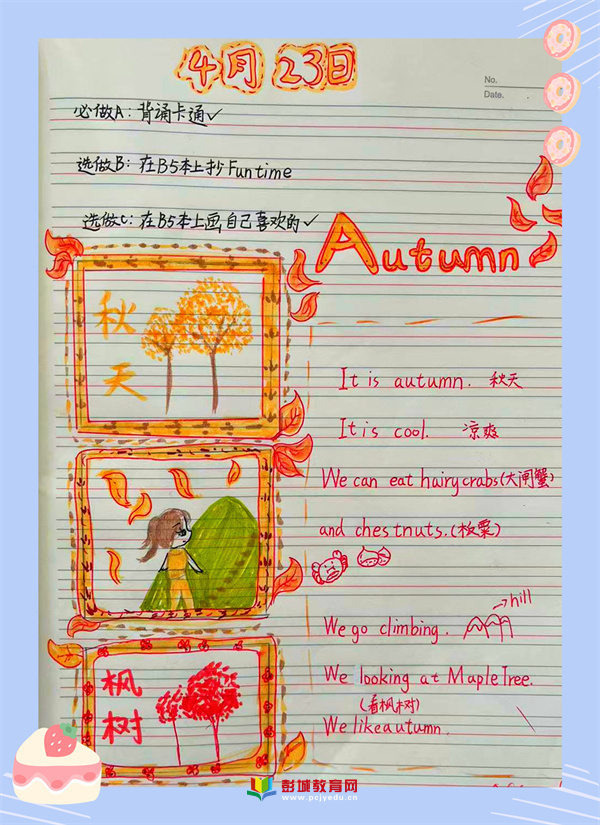 4月23日
No.
Date.
必做A：背诵卡通✓
选做B：在B5本上抄Fun time
选做C：在B5本上画自己喜欢的✓
Autumn
秋天
It is autumn. 秋天
It is cool. 凉爽
We can eat hairy crabs(大闸蟹)
and chestnuts.(板栗)
hill
We go climbing.
We looking at Maple Tree.
(看枫树)
We like autumn.
枫树
彭城教育网
www.pcjyedu.cn